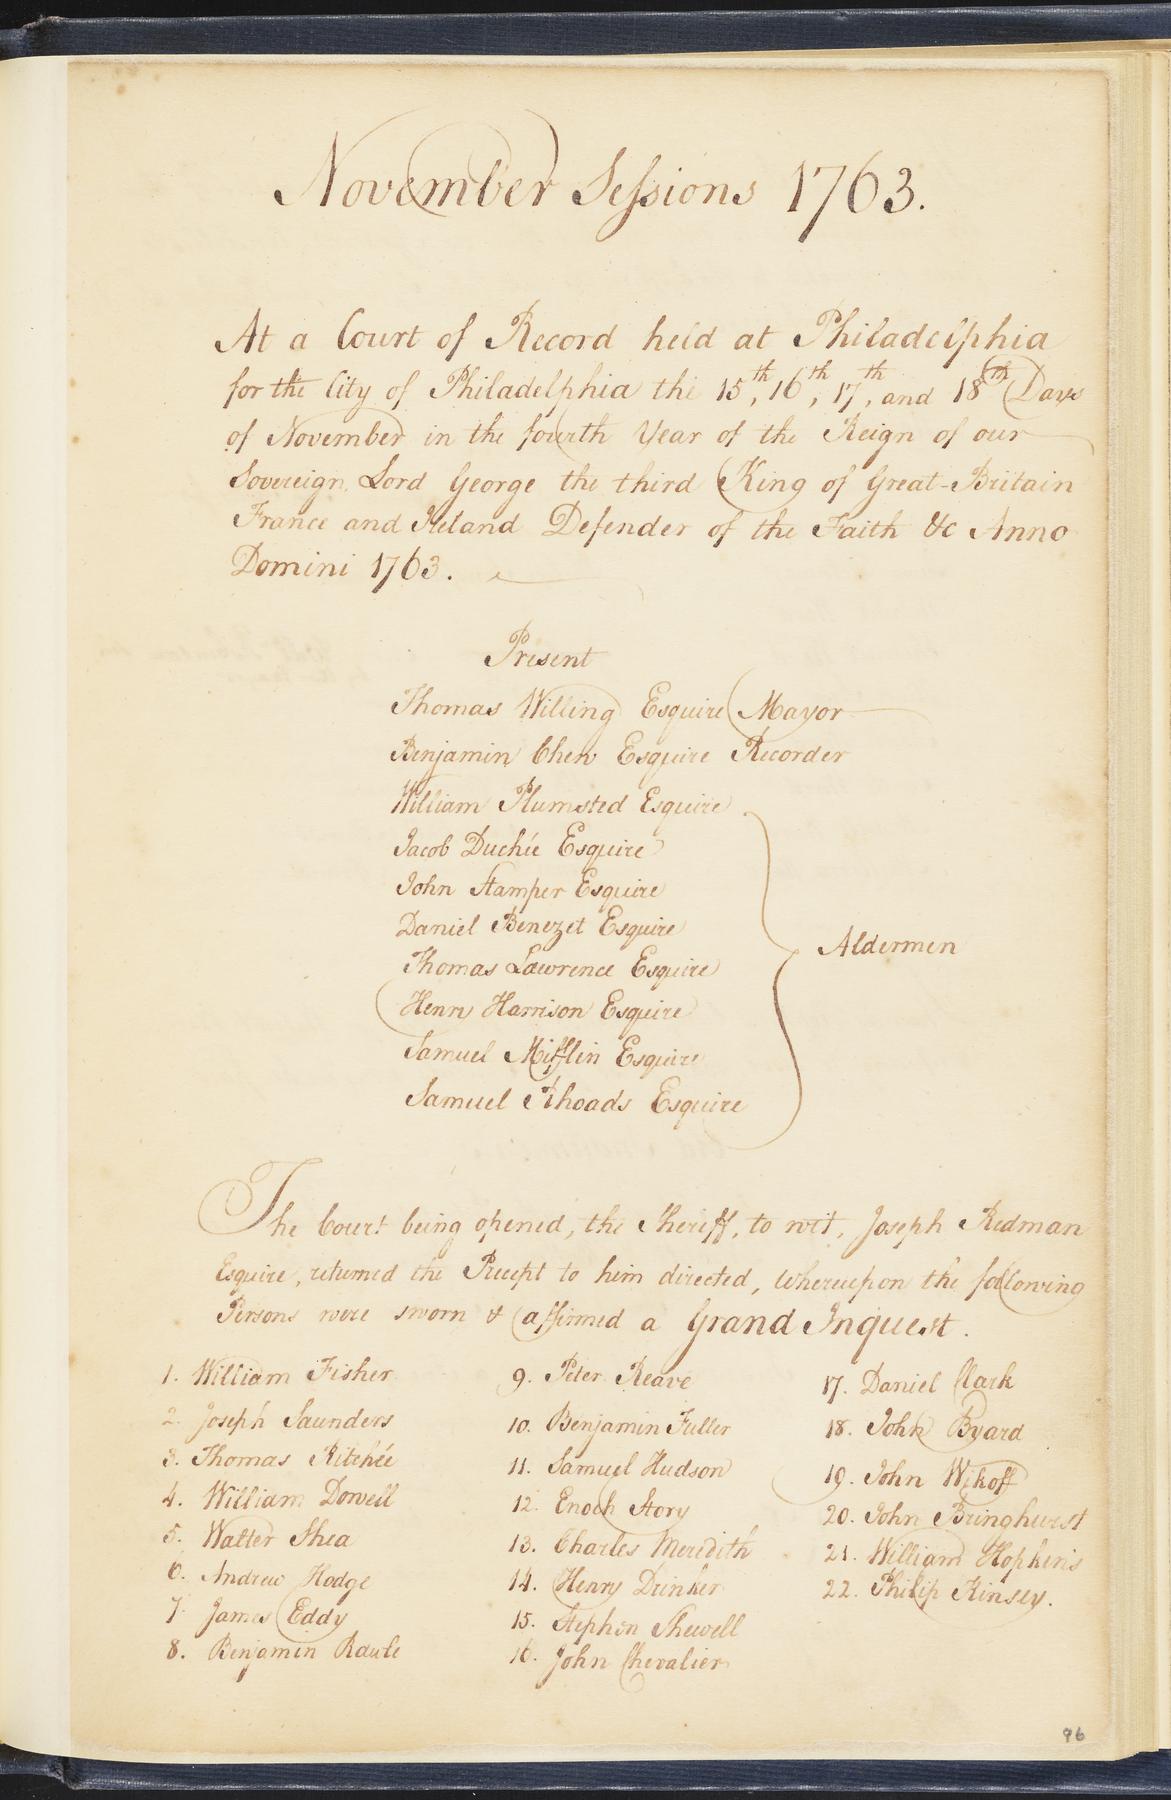 November Sessions 1763.
At a Court of Record held at Philadelphia
for the City of Philadelphia the 15th, 16th, 17th, and 18th Days
of November in the fourth Year of the Reign of our
Sovereign Lord George the third King of Great-Britain
France and Ireland Defender of the Faith &c Anno
Domini 1763.
Present
Thomas Willing Esquire Mayor
Benjamin Chew Esquire Recorder
William Plumsted Esquire
Jacob Duchée Esquire
John Stamper Esquire
Daniel Benezet Esquire
Thomas Lawrence Esquire
Henry Harrison Esquire
Samuel Mifflin Esquire
Samuel Rhoads Esquire
Aldermen
The Court being opened, the Sheriff, to wit, Joseph Redman
Esquire, returned the Precept to him directed, whereupon the following
Persons were sworn & affirmed a Grand Inquest.
1. William Fisher
2. Joseph Saunders
3. Thomas Ritchée
4. William Dowell
5. Walter Shea
6. Andrew Hodge
7. James Eddy
8. Benjamin Rawle
9. Peter Reave
10. Benjamin Fuller
11. Samuel Hudson
12. Enoch Story
13. Charles Meredith
14. Henry Drinker
15. Stephen Shewell
16. John Chevalier
17. Daniel Clark
18. John Byard
19. John Wikoff
20. John Bringhurst
21. William Hopkins
22. Philip Kinsey.
96